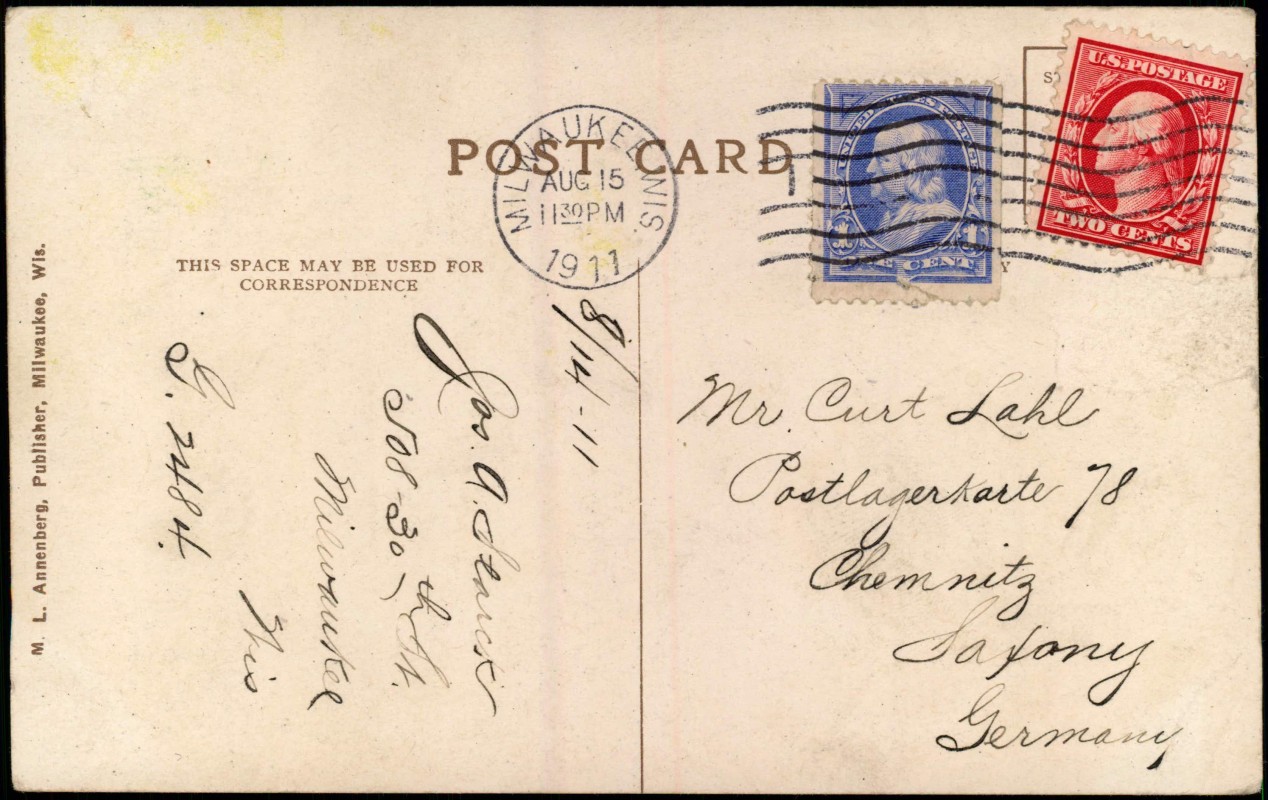 POST CARD
MILWAUKEE, WIS.
AUG 15
11 30 PM
1911
1
UNITED STATES POSTAGE
1 1
ONE CENT
U.S. POSTAGE
TWO CENTS
THIS SPACE MAY BE USED FOR
CORRESPONDENCE
M. L. Annenberg, Publisher, Milwaukee, Wis.
8/14-11
Jos. A. Starck
508-30th St.
Milwaukee
Wis
G. 2484.
Mr. Curt Lahl
Postlagerkarte 78
Chemnitz
Saxony
Germany